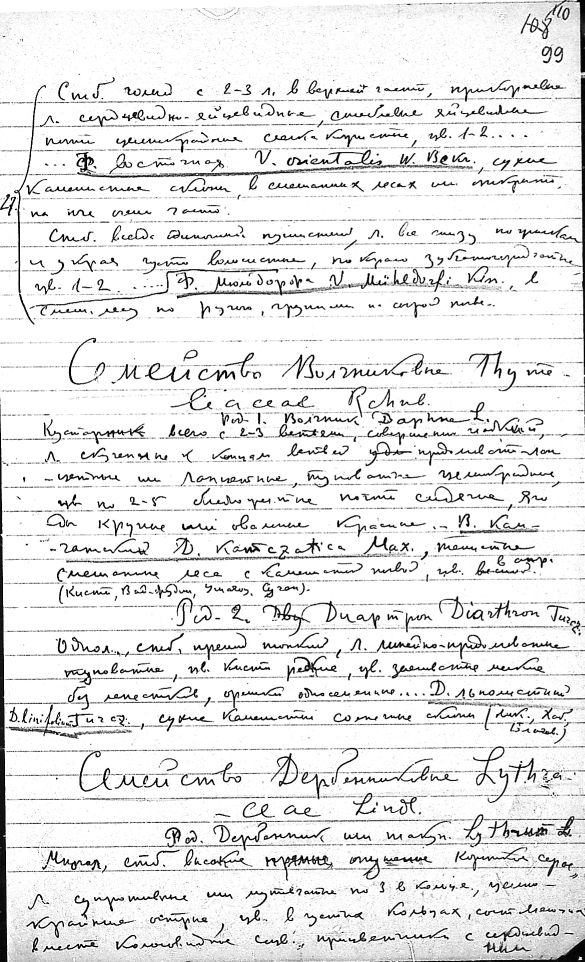 108 110
99
Стб. голый с 2-3 л. в верхней части, прикорневые
л. сердцевидно-яйцевидные, стеблевые яйцевидные
почти цельнокрайные слегка , цв. 1-2 ....
... Ф. восточная V. orientalis W. Bckr., сухие
каменистые склоны, в смешанных лесах или открыт.
на юге очень часто.
29 Стб. всегда одиночный пушистый, л. все снизу по
и у края густо волосистые, по краю зубчатогородчатые
цв. 1-2 ..... Ф. Мюльдорфа V. Mühldorfi Km., в
смеш. лесу по ручью, группами на сырой почве.
Семейство Волчниковые Thyme-
leaceae Rchnb.
Род 1. Волчник Daphne L.
Кустарник всего с 2-3 ветвями, совершенно гладкий,
л. скученные к концам ветвей продолговат.-лан-
-цетные или лопатные, туповатые цельнокрайные,
цв по 2-5 почти сидячие, яго-
ды крупные или овальные красные .. В. Кам-
-чатский D. Kamczatica Max., тенистые
смешанные леса с каменистой почвой, цв. весной.
Род. 2. Диартрон Diarthron Turcz.
Однол., стб. прямой тонкий, л. линейно-продолговатые
туповатые, цв. кисти редкие, цв. зеленоватые мелкие
без лепестков, орешек односеменной .... D. льнолистный
D. linifolium Turcz., сухие каменистые солнечные склоны (Ник., Хаб,
Благов.)
Семейство Дербенниковые Lythra-
-ceae Lindl.
Род. Дербенник или плакун. Lythrum L.
Многол., стб. высокие прямые, опушение короткое серое,
л супротивные или мутовчатые по 3 в кольце, цельно-
крайние острые, цв. в густых кольцах, составляющих
вместе колосовидное соцв., прицветники с сердцевид-
ным